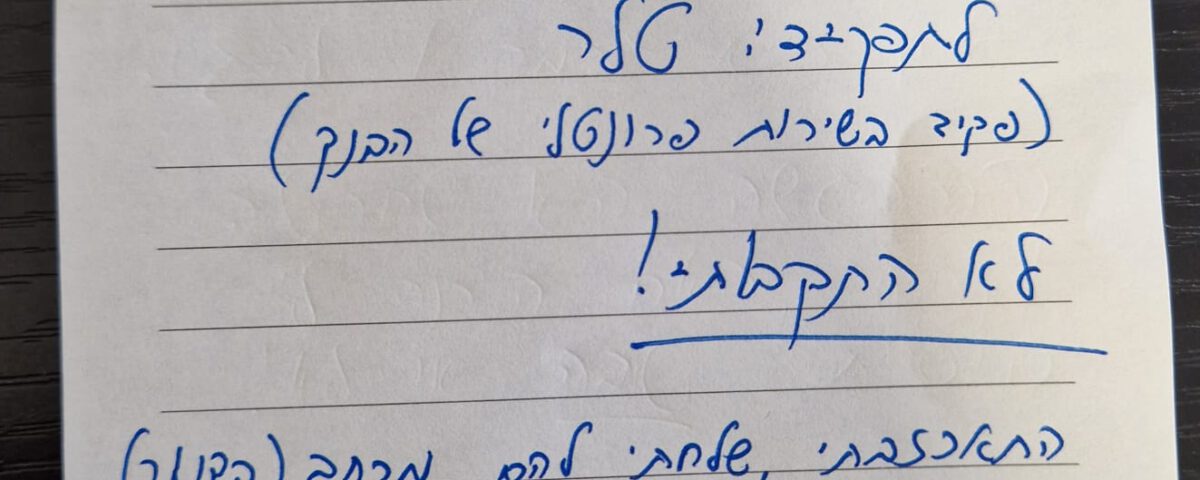 לתפקידי טלר
(פקיד בשירות פרונטלי של הבנק)
לא התקבלתי!
התאכזבתי, שלחתי להם מכתב